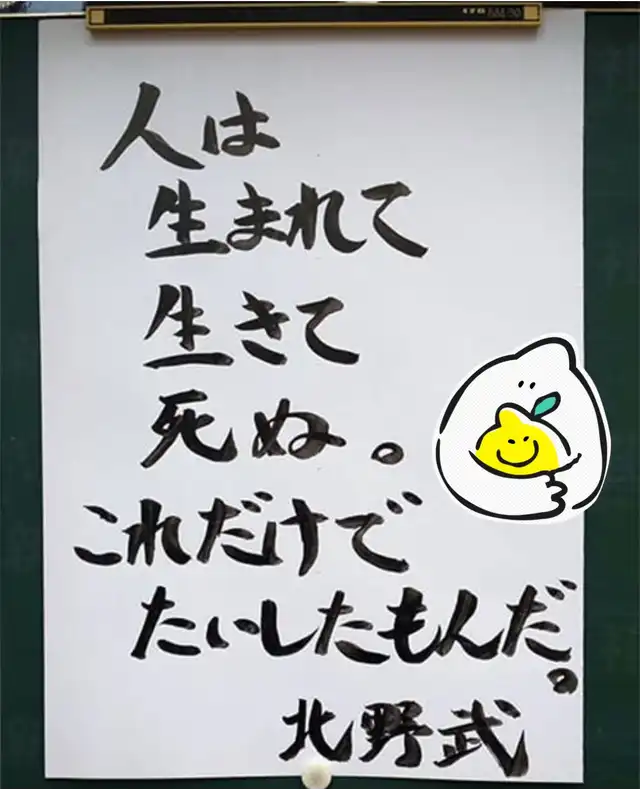 人は
生まれて
生きて
死ぬ。
これだけで
たいしたもんだ。
北野武